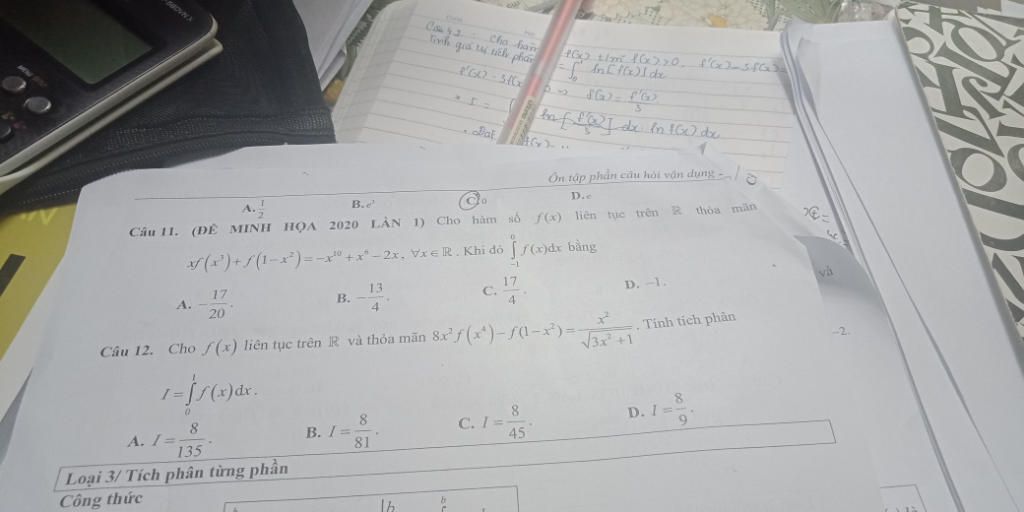 Câu 42: Cho hàm f(x) t/m f(x)>0, f'(x)-3f(x)=
tính giá trị tích phân = ∫₀ ln[f(x)]dx
=> f(x) = f'(x)/3
* I =
dx ln f(x) dx
. Đặt
Ôn tập phần câu hỏi vận dụng
A. 1/2 B. e² C. 0 D. e
Câu 11. (ĐỀ MINH HỌA 2020 LẦN 1) Cho hàm số f(x) liên tục trên ℝ thỏa mãn
xf(x³)+f(1−x²)=−x¹⁰+x⁶−2x, ∀x∈ℝ. Khi đó ∫₋₁⁰ f(x)dx bằng
A. −17/20. B. −13/4. C. 17/4. D. −1.
và
Câu 12. Cho f(x) liên tục trên ℝ và thỏa mãn 8x²f(x⁴)−f(1−x²)=x²/√(3x²+1). Tính tích phân
−2.
I=∫₀¹ f(x)dx.
A. I=8/135. B. I=8/81. C. I=8/45. D. I=8/9.
Loại 3/ Tích phân từng phần
Công thức